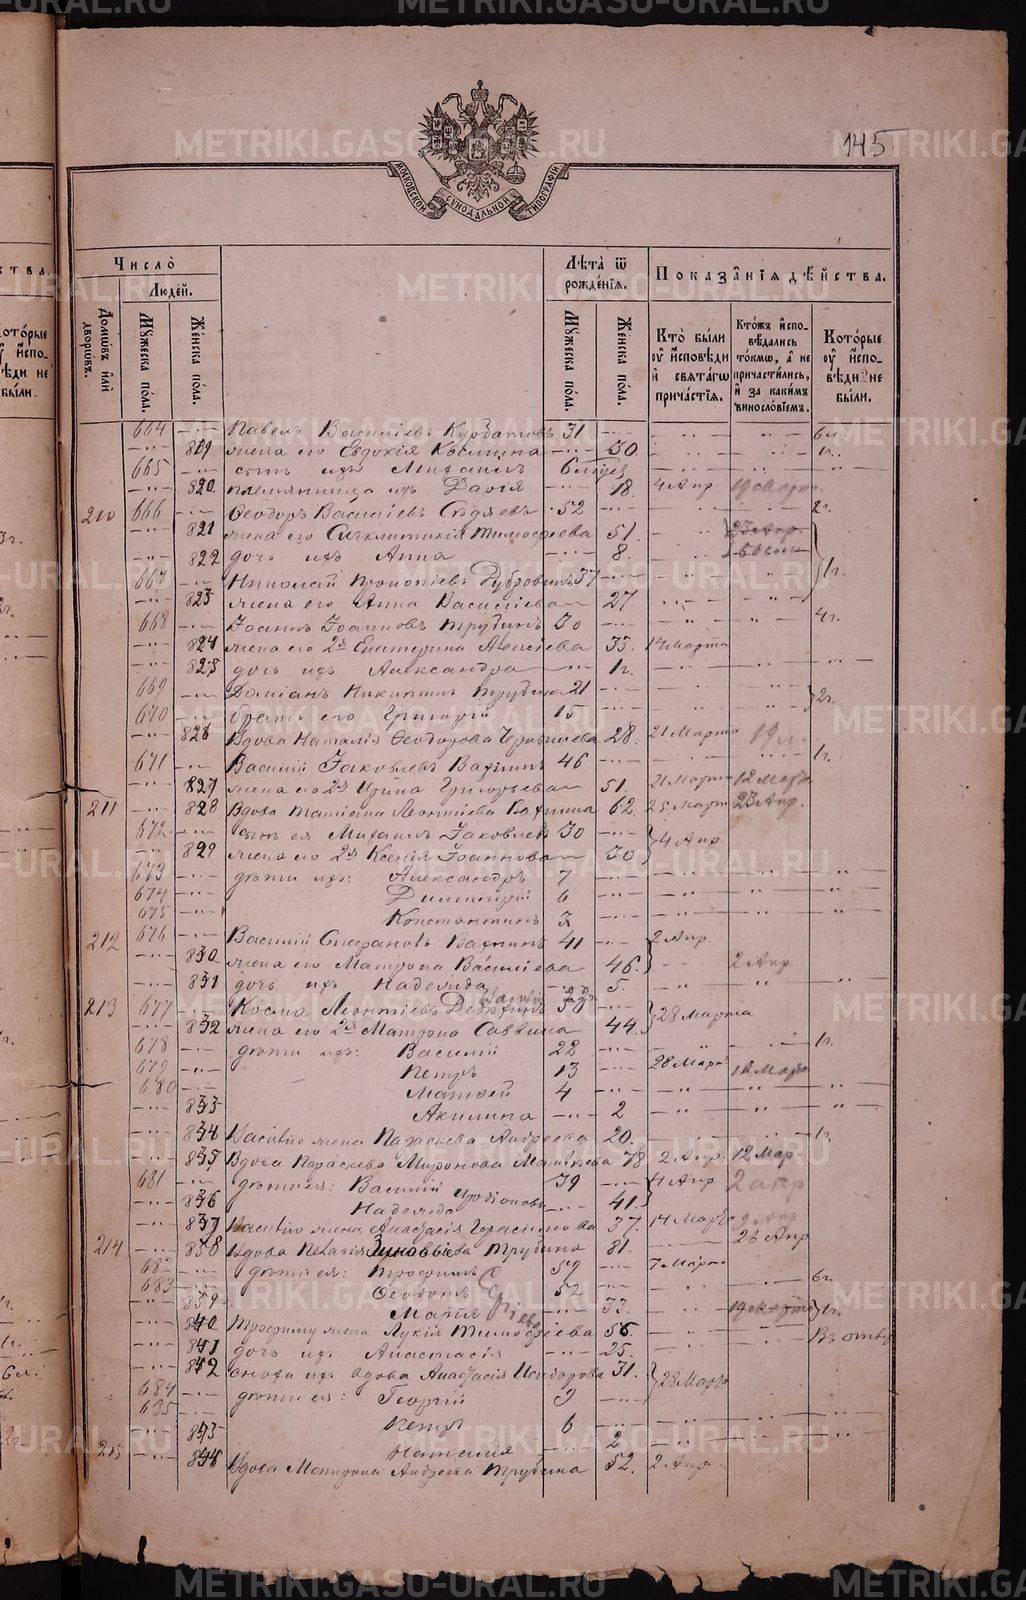 145
МОСКОВСКОЙ СѴНОДАЛЬНОЙ ТИПОГРАФІИ
Число
Людей.
Домѡвъ или дворѡвъ.
Мꙋжеска пола.
Женска пола.
Лѣта ѿ рожденїѧ.
Мꙋжеска пола.
Женска пола.
Показанїѧ дѣйства.
Кто были оу исповѣди и свѧтагѡ причастїѧ.
Ктожъ исповѣдались токмѡ, а не причастились, и за какимъ винословїемъ.
Которые оу исповѣди не были.
664 Павелъ Василіевъ Курбатовъ 31 6л.
819 жена его Евдокія 30
665 сынъ ихъ Михаилъ
820 племянница ихъ Дарія 18. 4 Апр. 19 Март.
210 666 Ѳеодоръ Василіевъ 52 2г.
821 жена его Сигклитикія Тимоѳеева 51. 23 Апр.
822 дочь ихъ Анна 8.
667 Николай Прокопіевъ Дубровинъ 37 1г.
823 жена его Анна Василіева 27
668 Іоаннъ Іоанновъ Трубинъ 30 4г.
824 жена его 2я Екатерина Алексіева 35. 14 Марта
825 дочь ихъ Александра 1г.
669 Даміанъ Никитинъ Трубинъ 21 2г.
670 братъ его Григорій 15
826 Вдова Наталія Ѳеодорова 28. 21 Марта
671 Василій Іаковлевъ Вяткинъ 46 1г.
827 жена его 2я Ирина Григорьева 51. 21 Март 12 Март
211 828 Вдова Татіана Леонтіева Вяткина 62. 25 Март 23 Апр.
672 сынъ ея Михаилъ Іаковлевъ 30 4 Апр.
829 жена его 2я Ксенія Іоаннова 30
673 дѣти ихъ: Александръ 7
674 Димитрій 6
675 Константинъ 3
212 676 Василій Стефановъ Вяткинъ 41 2 Апр.
830 жена его Матрона Василіева 46. 2 Апр
831 дочь ихъ Надежда 5.
213 677 Косма Леонтіевъ 50 28 Марта
832 жена его 2я Матрона Саввина 44.
678 дѣти ихъ: Василій 22 1г.
679 Петръ 13 28 Март 12 Март
680 Матѳей 4
833 Акилина 2
834 Василію жена Параскева Андреева 20. 1г.
835 Вдова Параскева Миронова Матвѣева 78 2 Апр. 12 Мар.
681 дѣти ея: Василій 39 4 Апр 2 апр
836 Надежда 41.
837 Василію жена Анастасія Герасимова 37. 14 Март
214 838 Вдова Пелагія Зиновьева Трубина 81. 26 Апр
682 дѣти ея: Трофимъ 59 7 Март
683 Ѳеодотъ 52 6г.
839 Марія 33. 19 Марта 2г.
840 Трофиму жена Лукія Тимоѳеева 56. Въ отлу
841 дочь их Анастасія 25.
842 сноха их вдова Анастасія Исидорова 31. 28 Март
684 дѣти ея: Георгій 9
685 Петръ 6
843 Наталія 2
215 844 Вдова Матрона Андреева Трубина 52. 2 Апр.
METRIKI.GASO-URAL.RU